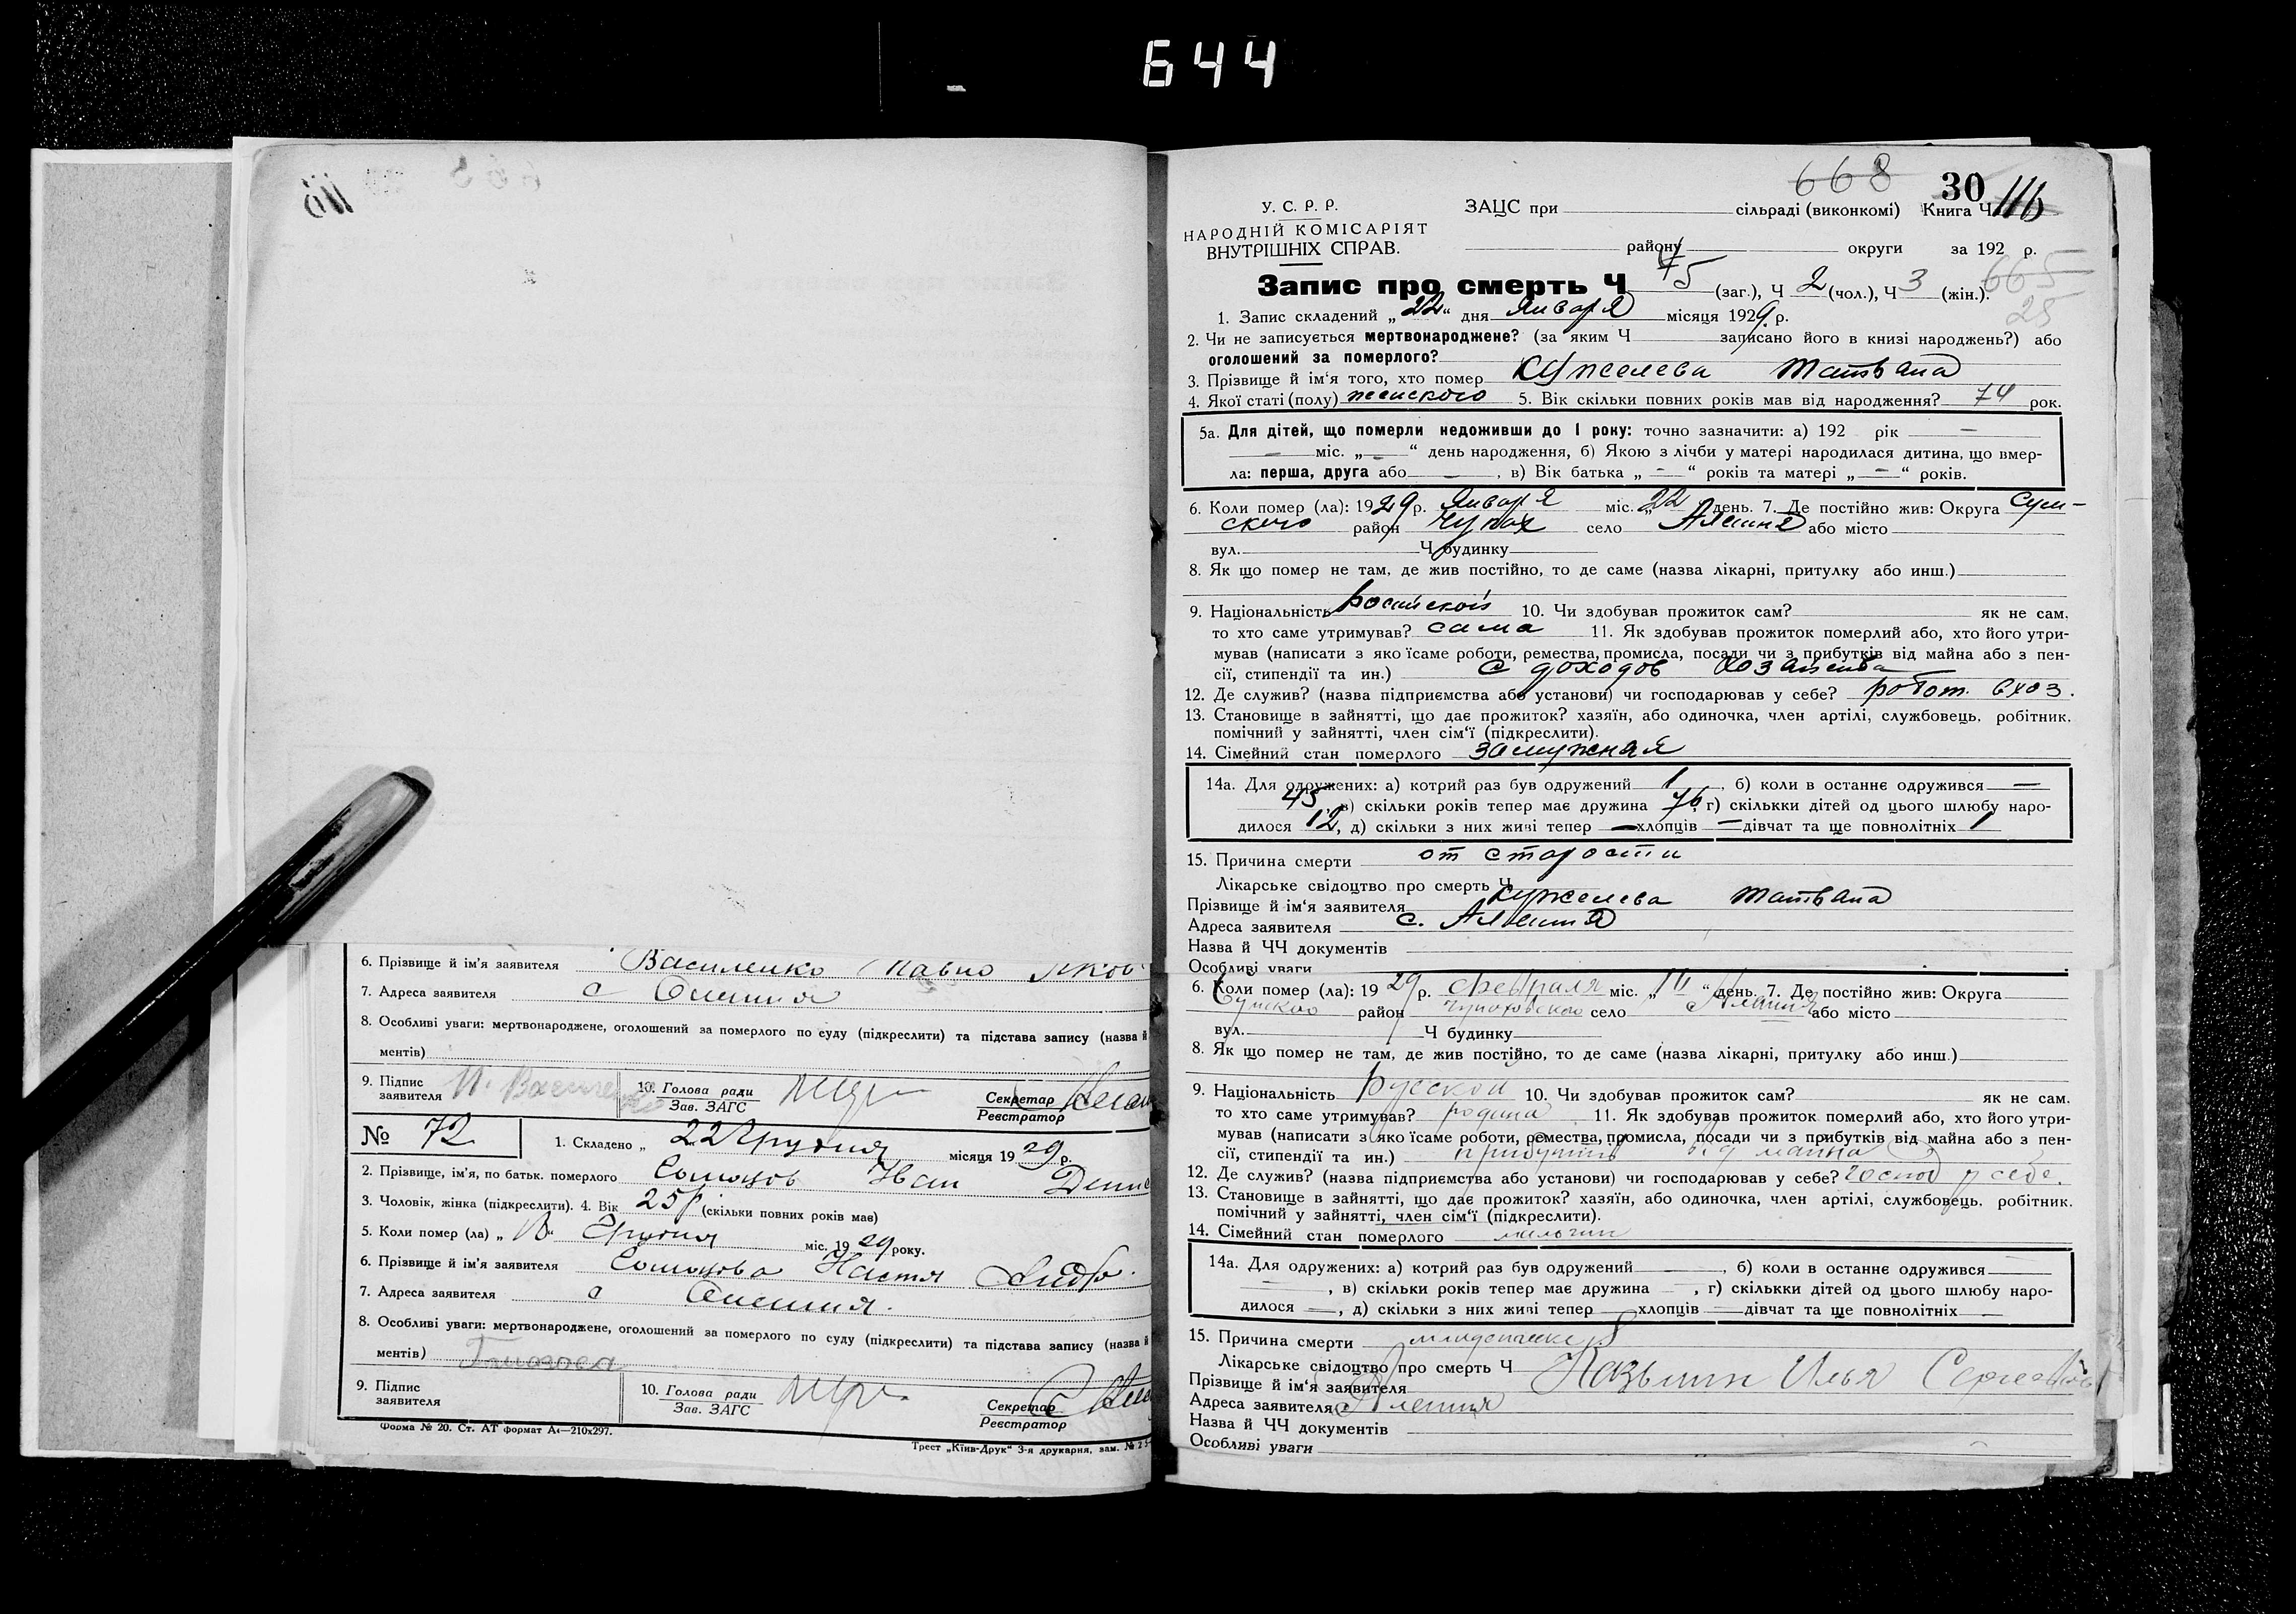 644
6. Прізвище й ім'я заявителя Василенко Павло Яков
7. Адреса заявителя с Олешня
8. Особливі уваги: мертвонароджене, оголошений за померлого по суду (підкреслити) та підстава запису (назва й
ментів)
9. Підпис заявителя
10. Голова ради
Зав. ЗАГС
Секретар
Реєстратор
№ 72
1. Складено „ 22 Грудня місяця 1929 р.
2. Прізвище, ім'я, по батьк. померлого Иван Дени
3. Чоловік, жінка (підкреслити). 4. Вік 25 р (скільки повних років мав)
5. Коли помер (ла) „ Грудня міс. 1929 року.
6. Прізвище й ім'я заявителя Настя
7. Адреса заявителя с Олешня.
8. Особливі уваги: мертвонароджене, оголошений за померлого по суду (підкреслити) та підстава запису (назва й
ментів)
9. Підпис заявителя
10. Голова ради
Зав. ЗАГС
Секретар
Реєстратор
Форма № 20. Ст. АТ формат А4—210x297.
Трест „Київ-Друк“ 3-я друкарня, зам. №
668 30 116
У. С. Р. Р.
НАРОДНІЙ КОМІСАРІЯТ
ВНУТРІШНІХ СПРАВ.
ЗАЦС при сільраді (виконкомі) Книга Ч
району округи за 192 р.
665
25
Запис про смерть Ч 5 (заг.), Ч 2 (чол.), Ч 3 (жін.).
1. Запис складений „22“ дня Января місяця 1929 р.
2. Чи не записується мертвонароджене? (за яким Ч записано його в книзі народжень?) або
оголошений за померлого?
3. Прізвище й ім'я того, хто помер Кужелева
4. Якої статі (полу) женского 5. Вік скільки повних років мав від народження? 74 рок.
5а. Для дітей, що померли недоживши до 1 року: точно зазначити: а) 192 рік —
— міс. „—“ день народження, б) Якою з лічби у матері народилася дитина, що вмер-
ла: перша, друга або —, в) Вік батька „—“ років та матері „—“ років.
6. Коли помер (ла): 1929 р. Января міс. „22 день. 7. Де постійно жив: Округа Сум-
ского район Чупах село Алешня або місто
вул. Ч будинку
8. Як що помер не там, де жив постійно, то де саме (назва лікарні, притулку або инш.)
9. Національність 10. Чи здобував прожиток сам? як не сам.
то хто саме утримував? сама 11. Як здобував прожиток померлий або, хто його утри-
мував (написати з яко їсаме роботи, ремества, промисла, посади чи з прибутків від майна або з пен-
сії, стипендії та ин.) с доходов хозяйства
12. Де служив? (назва підприємства або установи) чи господарював у себе? работ. в хоз.
13. Становище в зайнятті, що дає прожиток? хазяїн, або одиночка, член артілі, службовець, робітник,
помічний у зайнятті, член сім'ї (підкреслити).
14. Сімейний стан померлого замужная
14а. Для одружених: а) котрий раз був одружений 1, б) коли в останнє одружився —
45, в) скільки років тепер має дружина 76, г) скількки дітей од цього шлюбу наро-
дилося 12, д) скільки з них живі тепер — хлопців — дівчат та ще повнолітніх 1
15. Причина смерти от старости
Лікарське свідоцтво про смерть Ч
Прізвище й ім'я заявителя Кужелева
Адреса заявителя с. Алешня
Назва й ЧЧ документів
Особливі уваги
6. Коли помер (ла): 1929 р. Февраля міс. „ “ день. 7. Де постійно жив: Округа
Сумско район село Алешня або місто
вул. Ч будинку
8. Як що помер не там, де жив постійно, то де саме (назва лікарні, притулку або инш.)
9. Національність русской 10. Чи здобував прожиток сам? як не сам.
то хто саме утримував? родина 11. Як здобував прожиток померлий або, хто його утри-
мував (написати з яко їсаме роботи, ремества, промисла, посади чи з прибутків від майна або з пен-
сії, стипендії та ин.) від майна
12. Де служив? (назва підприємства або установи) чи господарював у себе? господ у себе.
13. Становище в зайнятті, що дає прожиток? хазяїн, або одиночка, член артілі, службовець, робітник.
помічний у зайнятті, член сім'ї (підкреслити).
14. Сімейний стан померлого
14а. Для одружених: а) котрий раз був одружений —, б) коли в останнє одружився —
—, в) скільки років тепер має дружина —, г) скількки дітей од цього шлюбу наро-
дилося —, д) скільки з них живі тепер — хлопців — дівчат та ще повнолітніх —
15. Причина смерти
Лікарське свідоцтво про смерть Ч
Прізвище й ім'я заявителя Илья
Адреса заявителя Алешня
Назва й ЧЧ документів
Особливі уваги